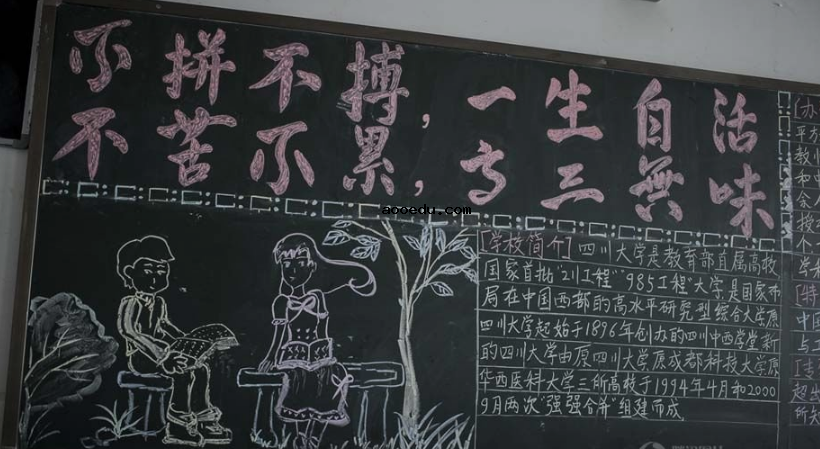 不拼不搏，一生白活
不苦不累，高三無味
aooedu.com
[学校简介]四川大学是教育部直属高校
国家首批"211工程""985工程"大学是国家布
局在中国西部的高水平研究型综合大学原
四川大学起始于1896年创办的四川中西学堂新
的四川大学由原四川大学原成都科技大学原
华西医科大学三所高校于1994年4月和2000
9月两次"强强合并"组建而成
[办
平方
和中
个
[特
中国
与
超出
所知